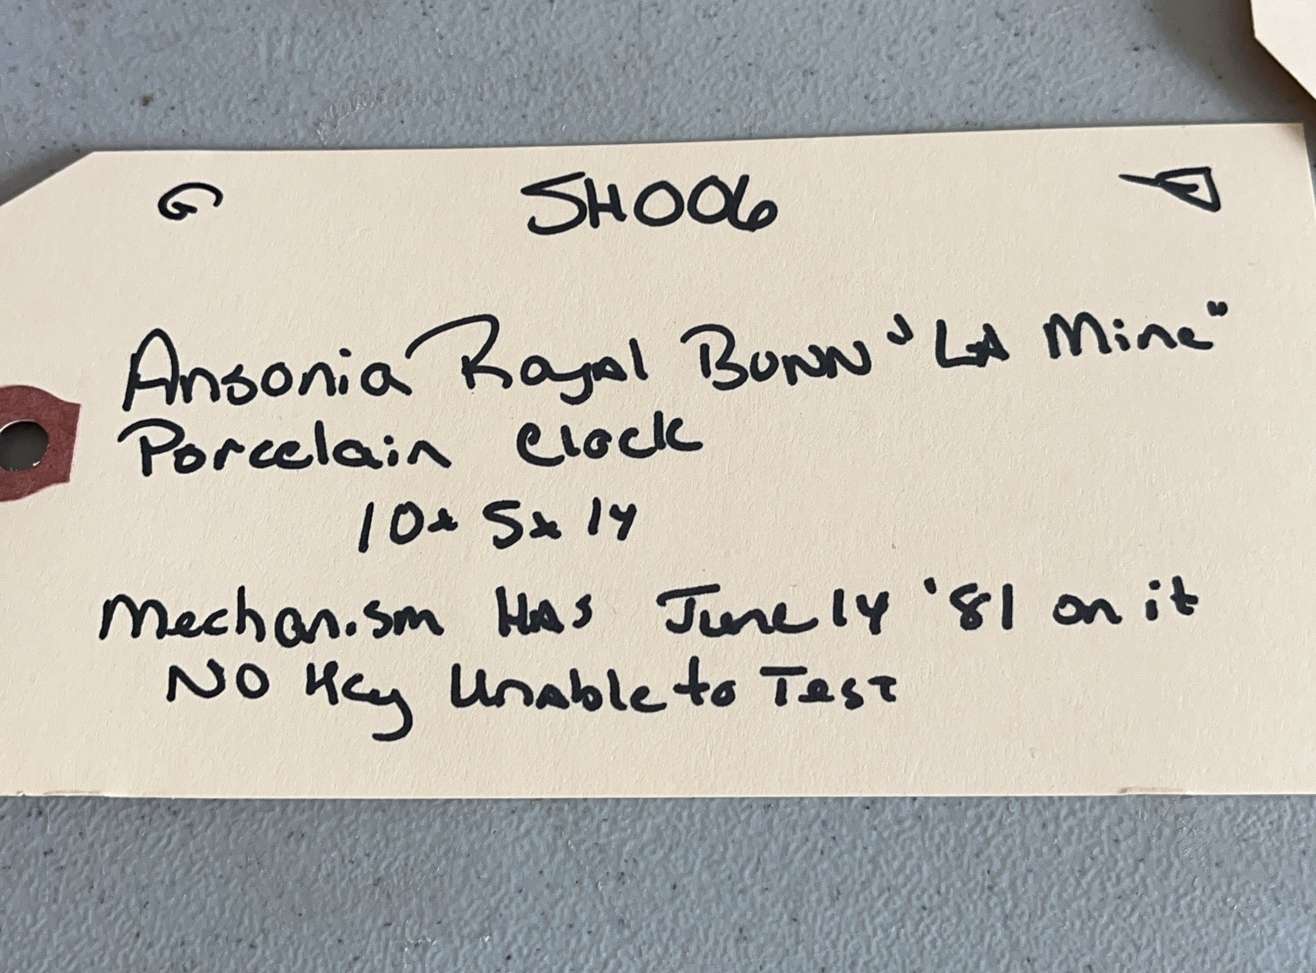 SH006
Ansonia Royal Bonn "LA Mine"
Porcelain Clock
10x 5x 14
Mechanism HAS June 14 '81 on it
NO Key Unable to Test